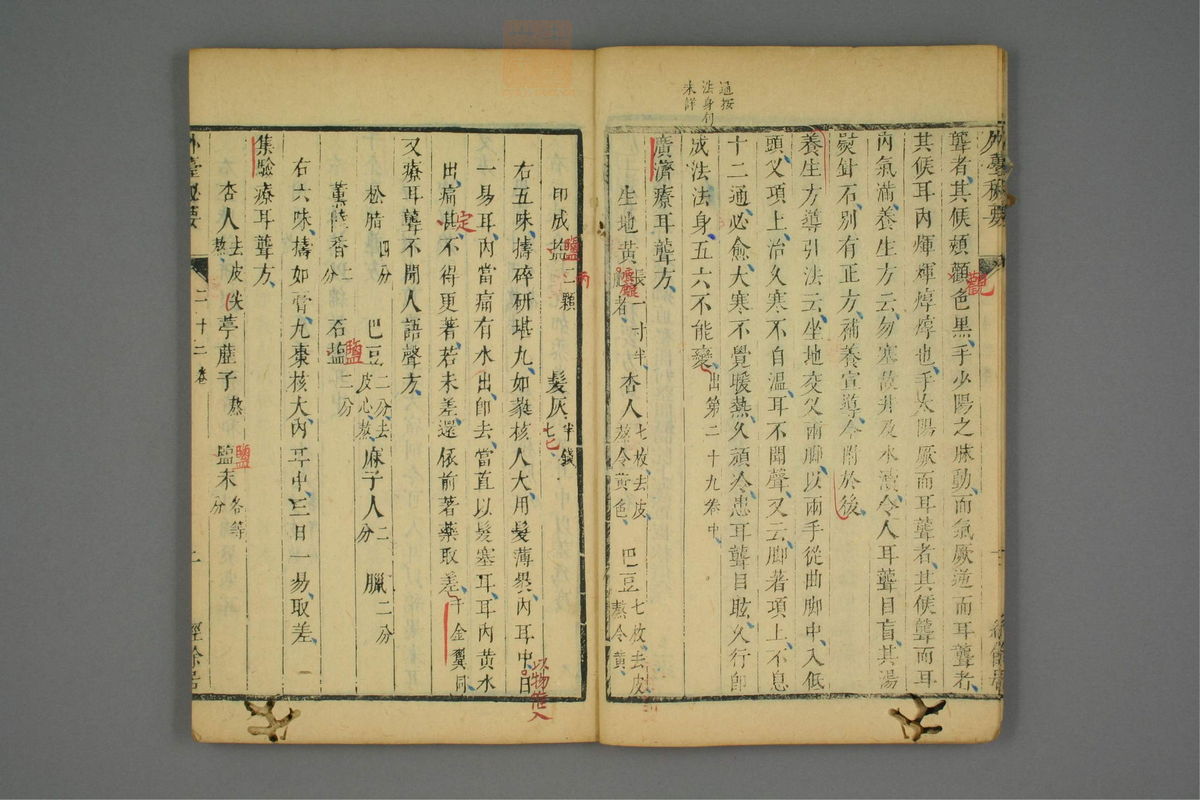 通按
法身句
未詳
外臺秘要
聾者、其候頰顴色黒、手少陽之脉動、而氣厥逆而耳聾者、
其候耳內煇煇焞焞也、手太陽厥而耳聾者、其候聾而耳
內氣滿、養生方云、勿塞故井及水瀆、令人耳聾目盲、其湯
熨針石、別有正方、補養宣導、今附於後、
養生方導引法云、坐地交叉兩脚、以兩手從曲脚中、入低
頭叉項上、治久寒不自溫、耳不聞聲、又云、脚著項上、不息
十二通、必愈、大寒不覺暖熱、久頑冷患、耳聾目眩、久行即
成法、法身五六、不能變、出第二十九卷中、
廣濟療耳聾方、
生地黃長一寸半、者、杏人七枚、去皮熬令黃色、巴豆七枚、去皮熬令黃、
印成塩二顆 髮灰半錢
鹽 兩 七
右五味、擣碎研、堪丸、如蕤核人大、用髮薄褁、內耳中、日
以物篐入
又一易、耳內當痛有水出、即去、當直以髮塞耳、耳內黃水
出、痛甚不得更著、若未差、還依前著藥取差、千金翼同、
定
又療耳聾不聞人語聲方、
松脂四分 巴豆二分去皮心、熬 麻子人二分 臘二分
薰陸香二分 石塩二分
鹽
右六味、擣如膏、丸棗核大、內耳中、三日一易、取差、
集驗療耳聾方、
杏人去皮熬、 葶藶子熬 鹽末各等分
鹽
外臺秘要 二十二卷 經餘居